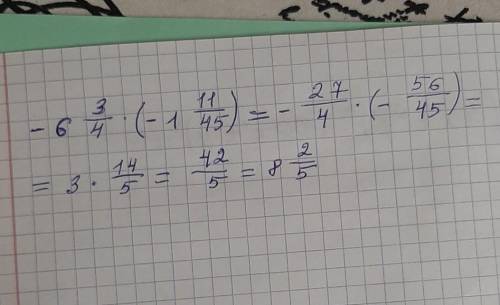 - 6 3/4 · (- 1 11/45) = - 27/4 · (- 56/45) =
= 3 · 14/5 = 42/5 = 8 2/5